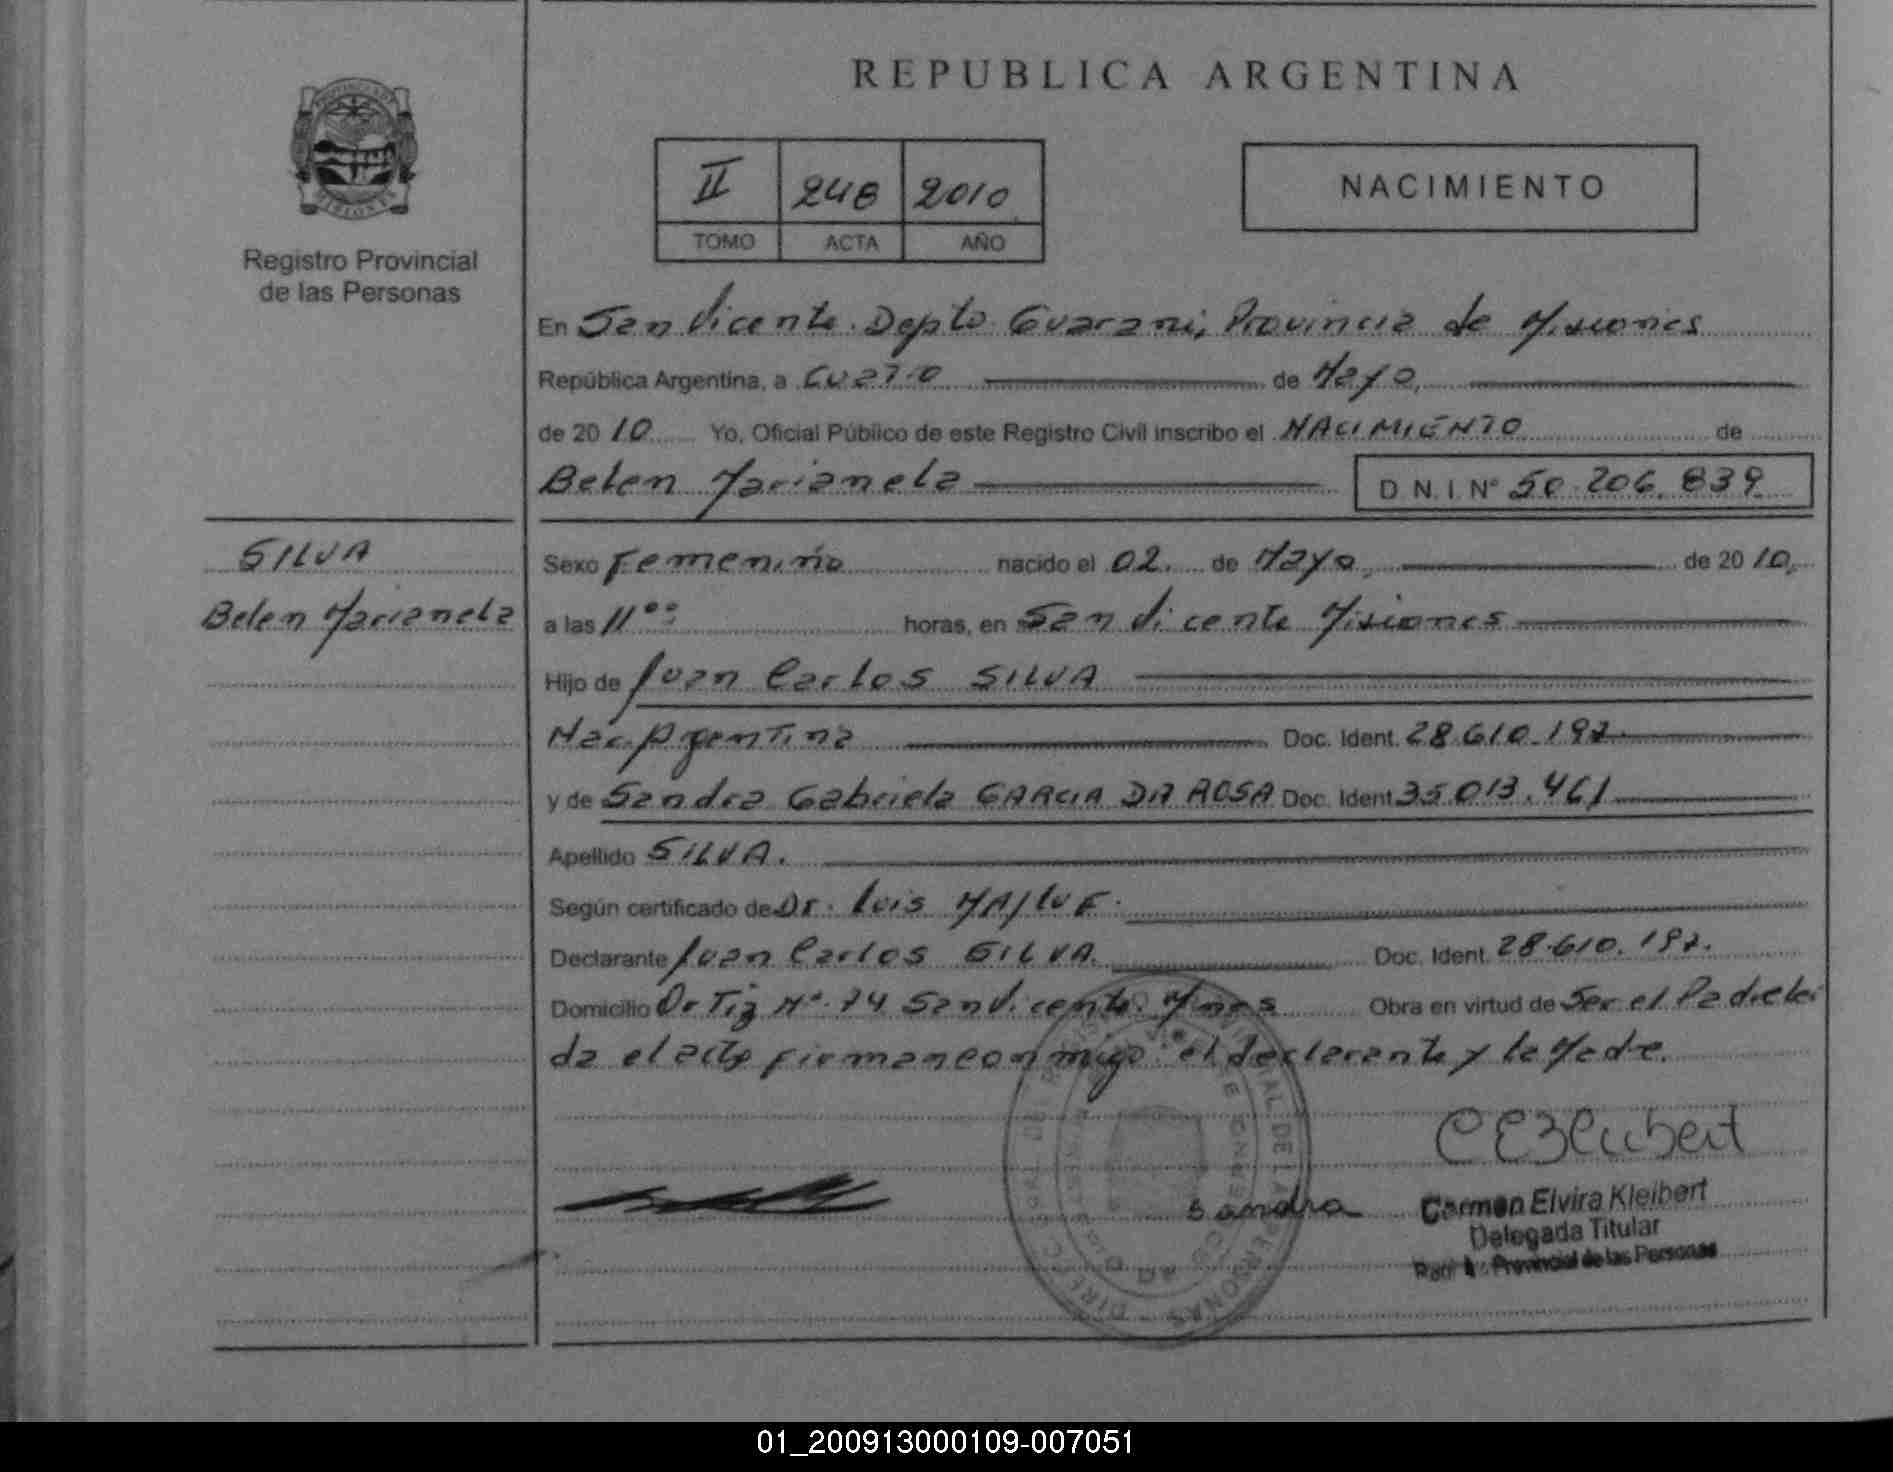 REPUBLICA ARGENTINA
II 248 2010
TOMO ACTA AÑO
NACIMIENTO
Registro Provincial
de las Personas
En San Vicente. Depto Guarani, Provincia de Misiones
República Argentina, a Cuatro de Mayo,
de 20 10 Yo, Oficial Público de este Registro Civil inscribo el NACIMIENTO de
Belen Marianela D.N.I. N° 50.206.839
SILVA
Belen Marianela
Sexo Femenino nacido el 02. de Mayo, de 20 10,
a las 11°° horas, en San Vicente Misiones
Hijo de Juan Carlos SILVA
Nac. Argentina Doc. Ident. 28.610.192
y de Sandra Gabriela GARCIA DA ROSA Doc. Ident 35.013.461
Apellido SILVA.
Según certificado de Dr. Luis
Declarante Juan Carlos SILVA. Doc. Ident. 28.610.192.
Domicilio Ortiz N°. 74 San Vicente. Mnes Obra en virtud de Ser el Padre lei
da el acta firman conmigo el declarante y la Madre.
CEKleibert
Sandra
Carmen Elvira Kleibert
Delegada Titular
Provincial de las Personas
01_200913000109-007051